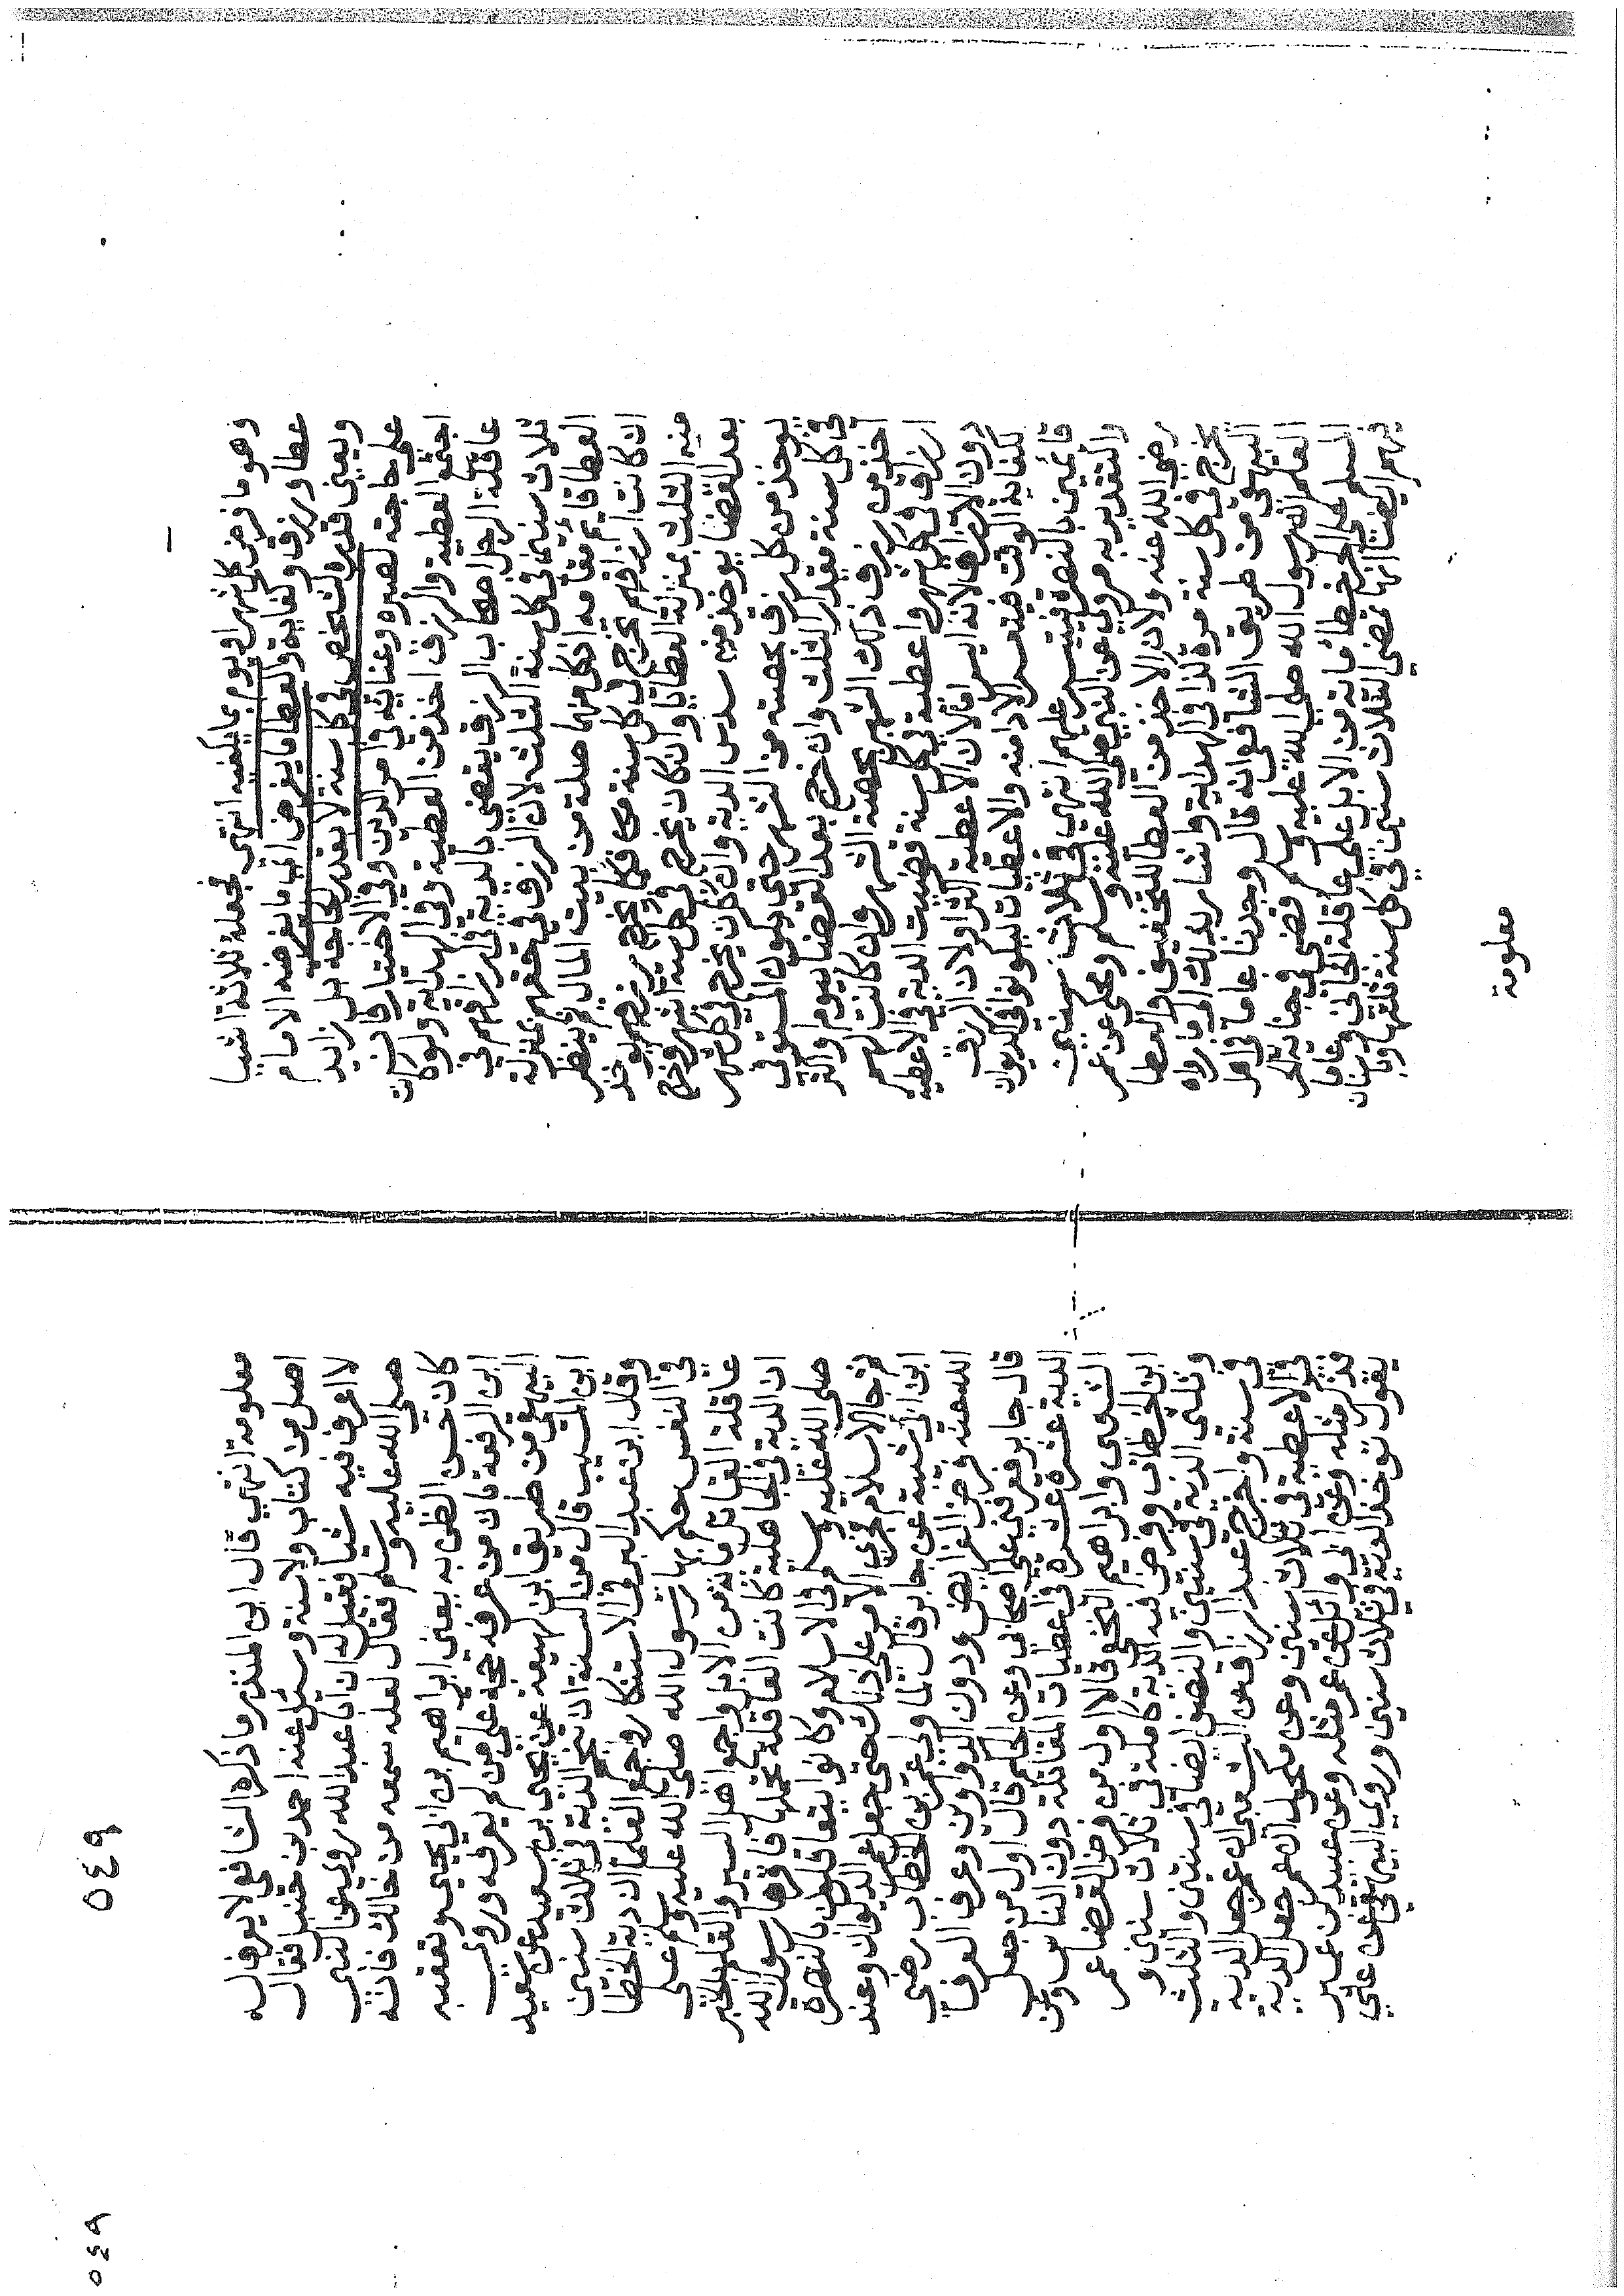 وهو ما فرض كل شهر او يوم بما يكفيه انتهى فجعله ثلاثة اشيا
عطا ورزق وكفاية والعطا ما يفرض اي ما يفرضه الامام
ويعين قدره لشخص في كل سنة لا بقدر الحاجة بل زايد
على حاجته لصبره وعنايته في امر الدين وفي الاختيار فان
اجتمع العطية والرزق اخذ من العطية وفي الهداية ولو كان
عاقلة الرجل اصحاب الرزق يقضى بالدية في ارزاقهم في
ثلاث سنين في كل سنة الثلث لان الرزق في حقهم بمنزلة
العطا قايم مقامه اذ كل منهما صلة من بيت المال ثم ينظر
ان كانت ارزاقهم تخرج في كل سنة فكما يخرج رزقهم يوخذ
منه الثلث بمنزلة العطايا وان كان يخرج في كل ستة اشهر وخرج
بعد القضا يوخذ منه سدس الدية وان كان يخرج في كل شهر
يوخذ من كل رزق بحصته من الشهر حتى يكون المستوفى
في كل سنة مقدار الثلث وان خرج بعد القضا بيوم او اكثر
اخذ من رزق ذلك الشهر بحصة الشهر وان كانت لهم
ارزاق في كل شهر واعطية في كل سنة فرضت الدية في الاعطية
دون الارزاق لانه ايسر اما لان الاعطية اكثر او لان الرزق
لكفاية الوقت فيتعسر الادا منه والاعطيات ليكونوا في الديوان
قايمين بالنصرة فيتيسر عليهم انتهى في ثلاث سنين
والتقدير به مروي عن النبي صلى الله عليه وسلم ومحكي عن عمر
رضي الله عنه ولان الاخذ من العطا للتخفيف والعطا
يخرج في كل سنة مرة كذا في الهداية وانشا بذلك الى ما رواه
البيهقي من طريق الشافعي انه قال وجدنا عاما في اهل
العلم ان رسول الله صلى الله عليه وسلم قضى في جناية الحر
المسلم على الحر خطأ ماية من الابل على عاقلة الجاني وعاما
فيهم ايضا انها تمضي الثلاث سنين في كل سنة ثلثها وباسنان
معلومة
٥٤٩
معلومة انتهى قال ابن المنذر ما ذكره الشافعي لا يعرف له
اصل من كتاب ولا سنة وسئل عنه احمد بن حنبل فقال
لا اعرف فيه شيا فقيل له ان ابا عبد الله روى عن النبي
صلى الله عليه وسلم فقال لعله سمعه من ذلك فانه
كان حسن الظن به يعني ابراهيم بن ابي يحيى وتعقبه
ابن الرفعة بان من عرف حجة على من لم يعرف وروى
البيهقي من طريق ابن لهيعة عن يحيى بن سعيد عن سعيد
ابن المسيب قال من السنة ان تنجم الدية في ثلاث سنين
وقال ابن عبد البر في الاستذكار اجمع العلما ان دية الخطا
في النفس حكم بها رسول الله صلى الله عليه وسلم على
عاقلة القاتل ماية من الابل واجمع اهل السير والعلم بالخبر
ان الدية في الجاهلية كانت العاقلة تحملها فاقرها رسول الله
صلى الله عليه وسلم في الاسلام وكانوا يتعاقلون بالنصرة
ثم جا الاسلام فجرى الامر على ذلك حتى جعل عمر الديوان وعند
ابن ابي شيبة عن جابر قال لما ولي عمر بن الخطاب رضي
الله عنه فرض الفرايض ودون الدواوين وعرف العرفا
قال جابر فعرفني على اصحابي وعن الحكم قال اول من جعل
الدية عشرة عشرة في اعطيات المقاتلة دون الناس وعن
الشعبي وابراهيم النخعي قالا اول من فرض القضا عمر
ابن الخطاب وفرض فيه الدية كاملة في ثلاث سنين و
وثلثي الدية في سنتين والنصف ايضا في سنتين والثلث
في سنة واخرج عبد الرزاق عن الشعبي ان عمر جعل الدية
في الاعطية في ثلاث سنين وعن مكحول ان عمر جعل الدية
فذكر مثله وعن ابي وائل عن عمر مثله وعن عبيد بن عمير
يقول توخذ الدية في ثلاث سنين وروى البيهقي عن علي
٥٤٩